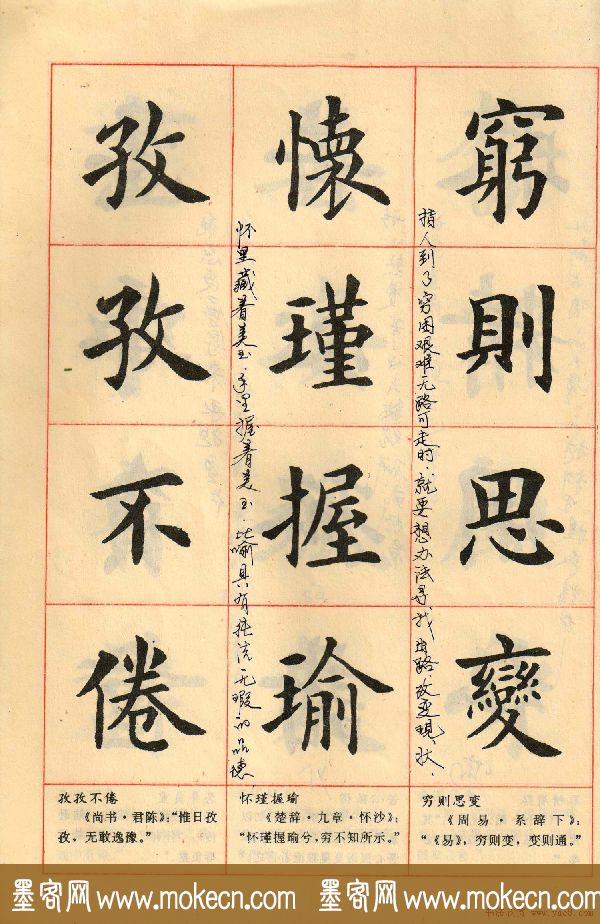 窮則思變
指人到了穷困艰难无路可走时，就要想办法寻找出路，改变现状。
懷瑾握瑜
怀里藏着美玉，手里握着美玉，比喻具有纯洁无瑕的品德
孜孜不倦
孜孜不倦
《尚书·君陈》：“惟日孜
孜，无敢逸豫。”
怀瑾握瑜
《楚辞·九章·怀沙》：
“怀瑾握瑜兮，穷不知所示。”
穷则思变
《周易·系辞下》：
“《易》，穷则变，变则通。”
墨客网 www.mokecn.com 墨客网 www.mokecn.com